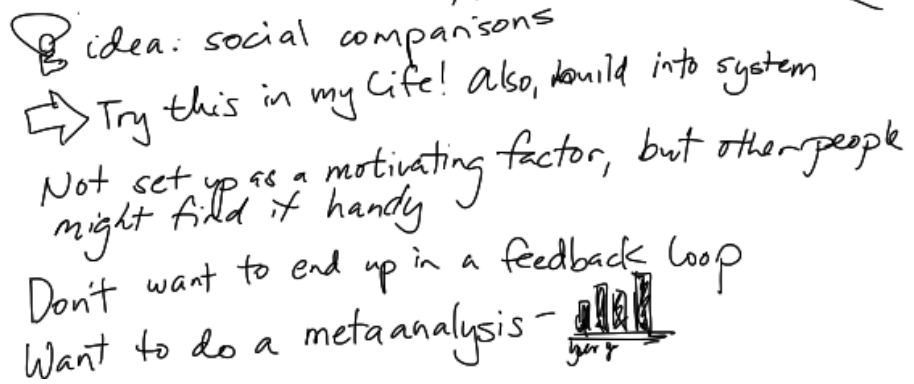 idea: social comparisons
Try this in my life! Also, build into system
Not set up as a motivating factor, but other people
might find it handy
Don't want to end up in a feedback loop
Want to do a metaanalysis -